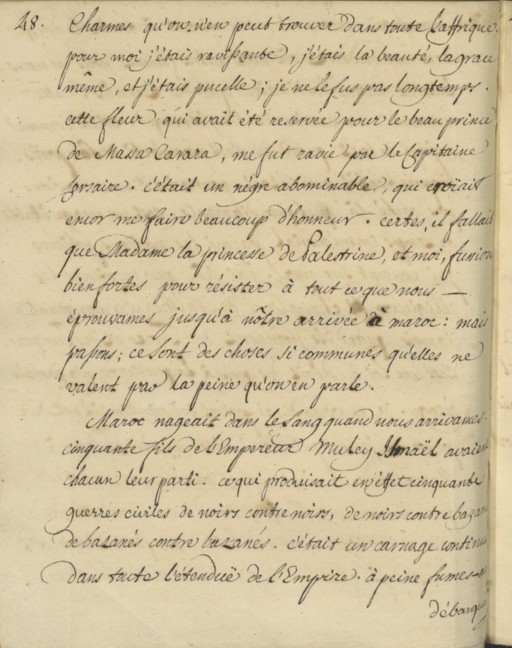 48. Charmes qu'on n'en peut trouver dans toute l'affrique.
pour moi j'étais ravissante, j'étais la beauté, la grace
même, et j'étais pucelle; je ne le fus pas longtemps.
cette fleur qui avait été reservée pour le beau prince
de Massa Carara, me fut ravie par le Capitaine
Corsaire. c'était un négre abominable, qui croiait
encor me faire beaucoup d'honneur. certes, il fallait
que Madame la princesse de Palestrine, et moi, fussions
bien fortes pour résister à tout ce que nous —
éprouvames jusqu'à nôtre arrivée à maroc: mais
passons; ce sont des choses si communes qu'elles ne
valent pas la peine qu'on en parle.
Maroc nageait dans le sang quand nous arrivames.
cinquante fils de l'Empereur Muley Ismaël avaient
chacun leur parti. ce qui produisait en effet cinquante
guerres civiles de noirs contre noirs, de noirs contre bazan
de bazanés contre bazanés. c'était un carnage continu
dans toute l'étenduë de l'Empire. à peine fumes-n
débarqu